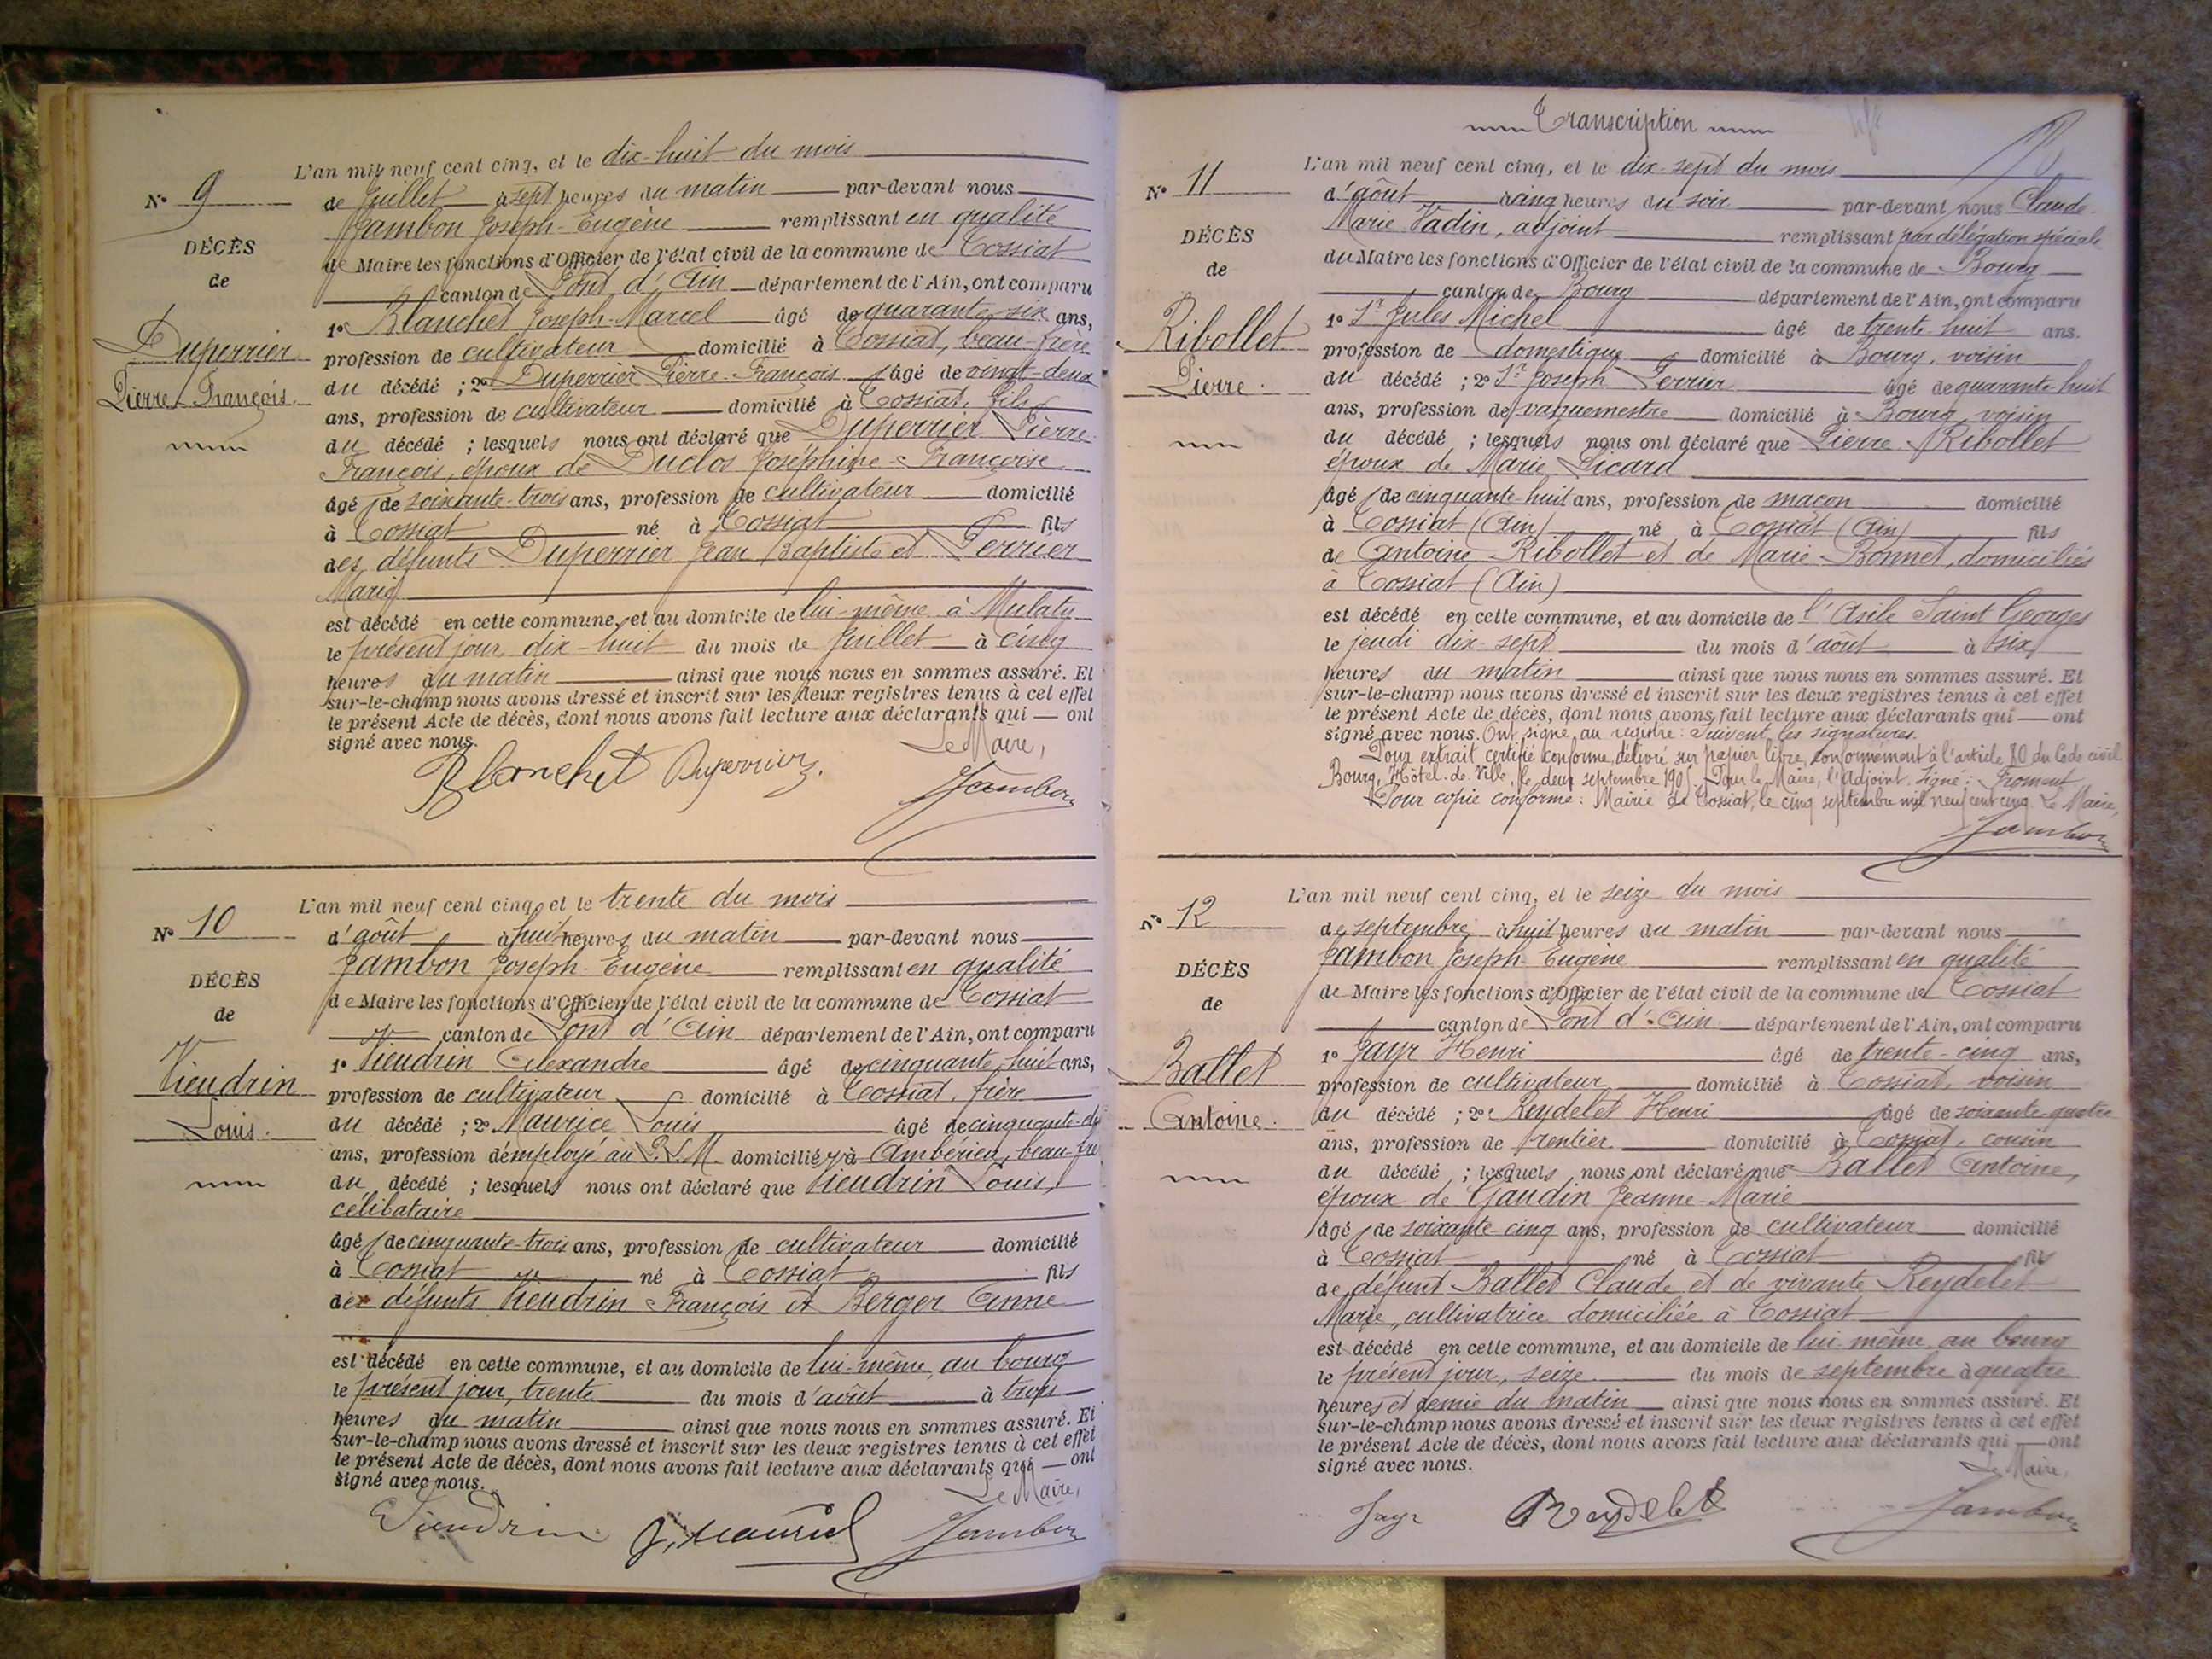 L'an mil neuf cent cinq, et le dix-huit du mois
N° 9
de Juillet à sept heures du matin par-devant nous
Jambon Joseph-Eugène remplissant en qualité
DÉCÈS
de Maire les fonctions d'Officier de l'état civil de la commune de Tossiat
de
canton de Pont d'Ain département de l'Ain, ont comparu
1° Blanchet Joseph-Marcel âgé de quarante-six ans,
Duperrier
profession de cultivateur domicilié à Tossiat, beau-frère
du décédé ; 2° Duperrier Pierre-François âgé de vingt-deux
Pierre François.
ans, profession de cultivateur domicilié à Tossiat, fils
du décédé ; lesquels nous ont déclaré que Duperrier Pierre-
François, époux de Duclos Joséphine-Françoise
âgé de soixante-trois ans, profession de cultivateur domicilié
à Tossiat né à Tossiat fils
des défunts Duperrier Jean Baptiste et Perrier
Marie
est décédé en cette commune, et au domicile de lui-même à Mulaty
le présent jour dix-huit du mois de Juillet à cinq
heures du matin ainsi que nous nous en sommes assuré. Et
sur-le-champ nous avons dressé et inscrit sur les deux registres tenus à cet effet
le présent Acte de décès, dont nous avons fait lecture aux déclarants qui — ont
signé avec nous.
Le Maire,
Blanchet Duperrier
Jambon
L'an mil neuf cent cinq, et le trente du mois
N° 10
d'août à huit heures du matin par-devant nous
Jambon Joseph-Eugène remplissant en qualité
DÉCÈS
de Maire les fonctions d'Officier de l'état civil de la commune de Tossiat
de
canton de Pont d'Ain département de l'Ain, ont comparu
1° Vieudrin Alexandre âgé de cinquante-huit ans,
Vieudrin
profession de cultivateur domicilié à Tossiat, frère
Louis.
du décédé ; 2° Maurice Louis âgé de cinquante-
ans, profession d'employé au P.L.M. domicilié à Ambérieu, beau-frè
du décédé ; lesquels nous ont déclaré que Vieudrin Louis,
célibataire
âgé de cinquante-trois ans, profession de cultivateur domicilié
à Tossiat né à Tossiat fils
des défunts Vieudrin François et Berger Anne
est décédé en cette commune, et au domicile de lui-même, au bourg
le présent jour, trente du mois d'août à trois
heures du matin ainsi que nous nous en sommes assuré. Et
sur-le-champ nous avons dressé et inscrit sur les deux registres tenus à cet effet
le présent Acte de décès, dont nous avons fait lecture aux déclarants qui — ont
signé avec nous.
Le Maire,
Vieudrin Jambon
Transcription
L'an mil neuf cent cinq, et le dix-sept du mois
N° 11
d'août à cinq heures du soir par-devant nous Claude-
Marie Vadin, adjoint remplissant par délégation spéciale
DÉCÈS
du Maire les fonctions d'Officier de l'état civil de la commune de Bourg
de
canton de Bourg département de l'Ain, ont comparu
Ribollet
1° Sr Jules Michel âgé de trente huit ans.
profession de domestique domicilié à Bourg, voisin
Pierre.
du décédé ; 2° Sr Joseph Perrier âgé de quarante huit
ans, profession de vaguemestre domicilié à Bourg, voisin
du décédé ; lesquels nous ont déclaré que Pierre Ribollet
époux de Marie Picard
âgé de cinquante-huit ans, profession de maçon domicilié
à Tossiat (Ain) né à Tossiat (Ain) fils
de Antoine Ribollet et de Marie Bonnet, domiciliés
à Tossiat (Ain)
est décédé en cette commune, et au domicile de l'Asile Saint Georges
le jeudi dix-sept du mois d'août à six
heures du matin ainsi que nous nous en sommes assuré. Et
sur-le-champ nous avons dressé et inscrit sur les deux registres tenus à cet effet
le présent Acte de décès, dont nous avons fait lecture aux déclarants qui — ont
signé avec nous. Ont signé au registre : Suivent les signatures.
Pour extrait certifié conforme, délivré sur papier libre, conformément à l'article 80 du Code civil
Bourg, Hôtel-de-Ville, le deux septembre 1905. Pour le Maire, l'Adjoint. Signé : Froment
Pour copie conforme : Mairie de Tossiat, le cinq septembre mil neuf cent cinq. Le Maire,
Jambon
L'an mil neuf cent cinq, et le seize du mois
N° 12
de septembre à huit heures du matin par-devant nous
Jambon Joseph-Eugène remplissant en qualité
DÉCÈS
de Maire les fonctions d'Officier de l'état civil de la commune de Tossiat
de
canton de Pont d'Ain département de l'Ain, ont comparu
1° Jayr Henri âgé de trente-cinq ans,
Ballet
profession de cultivateur domicilié à Tossiat, voisin
Antoine.
du décédé ; 2° Reydelet Henri âgé de soixante-quatre
ans, profession de rentier domicilié à Tossiat, cousin
du décédé ; lesquels nous ont déclaré que Ballet Antoine,
époux de Gaudin Jeanne-Marie
âgé de soixante-cinq ans, profession de cultivateur domicilié
à Tossiat né à Tossiat fils
de défunt Ballet Claude et de vivante Reydelet
Marie, cultivatrice domiciliée à Tossiat
est décédé en cette commune, et au domicile de lui-même au bourg
le présent jour, seize du mois de septembre à quatre
heures et demie du matin ainsi que nous nous en sommes assuré. Et
sur-le-champ nous avons dressé et inscrit sur les deux registres tenus à cet effet
le présent Acte de décès, dont nous avons fait lecture aux déclarants qui — ont
signé avec nous.
Le Maire,
Jayr Reydelet Jambon